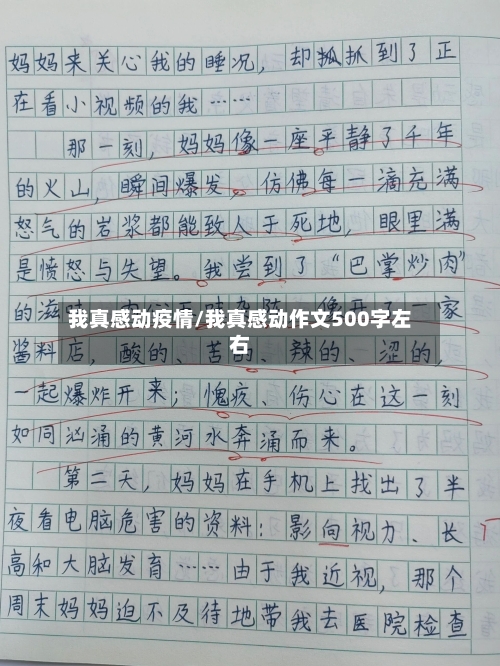 妈妈来关心我的睡况，却抓抓到了正
在看小视频的我……
那一刻，妈妈像一座平静了千年
的火山，瞬间爆发，仿佛每一滴充满
怒气的岩浆都能致人于死地，眼里满
是愤怒与失望。我尝到了“巴掌炒肉”
的滋味
一家
我真感动疫情/我真感动作文500字左
右
酱料店，酸的、苦的、辣的、涩的，
一起爆炸开来；愧疚、伤心在这一刻
如同汹涌的黄河水奔涌而来。
第二天，妈妈在手机上找出了半
夜看电脑危害的资料：影向视力、长
高和大脑发育……由于我近视，那个
周末妈妈迫不及待地带我去医院检查